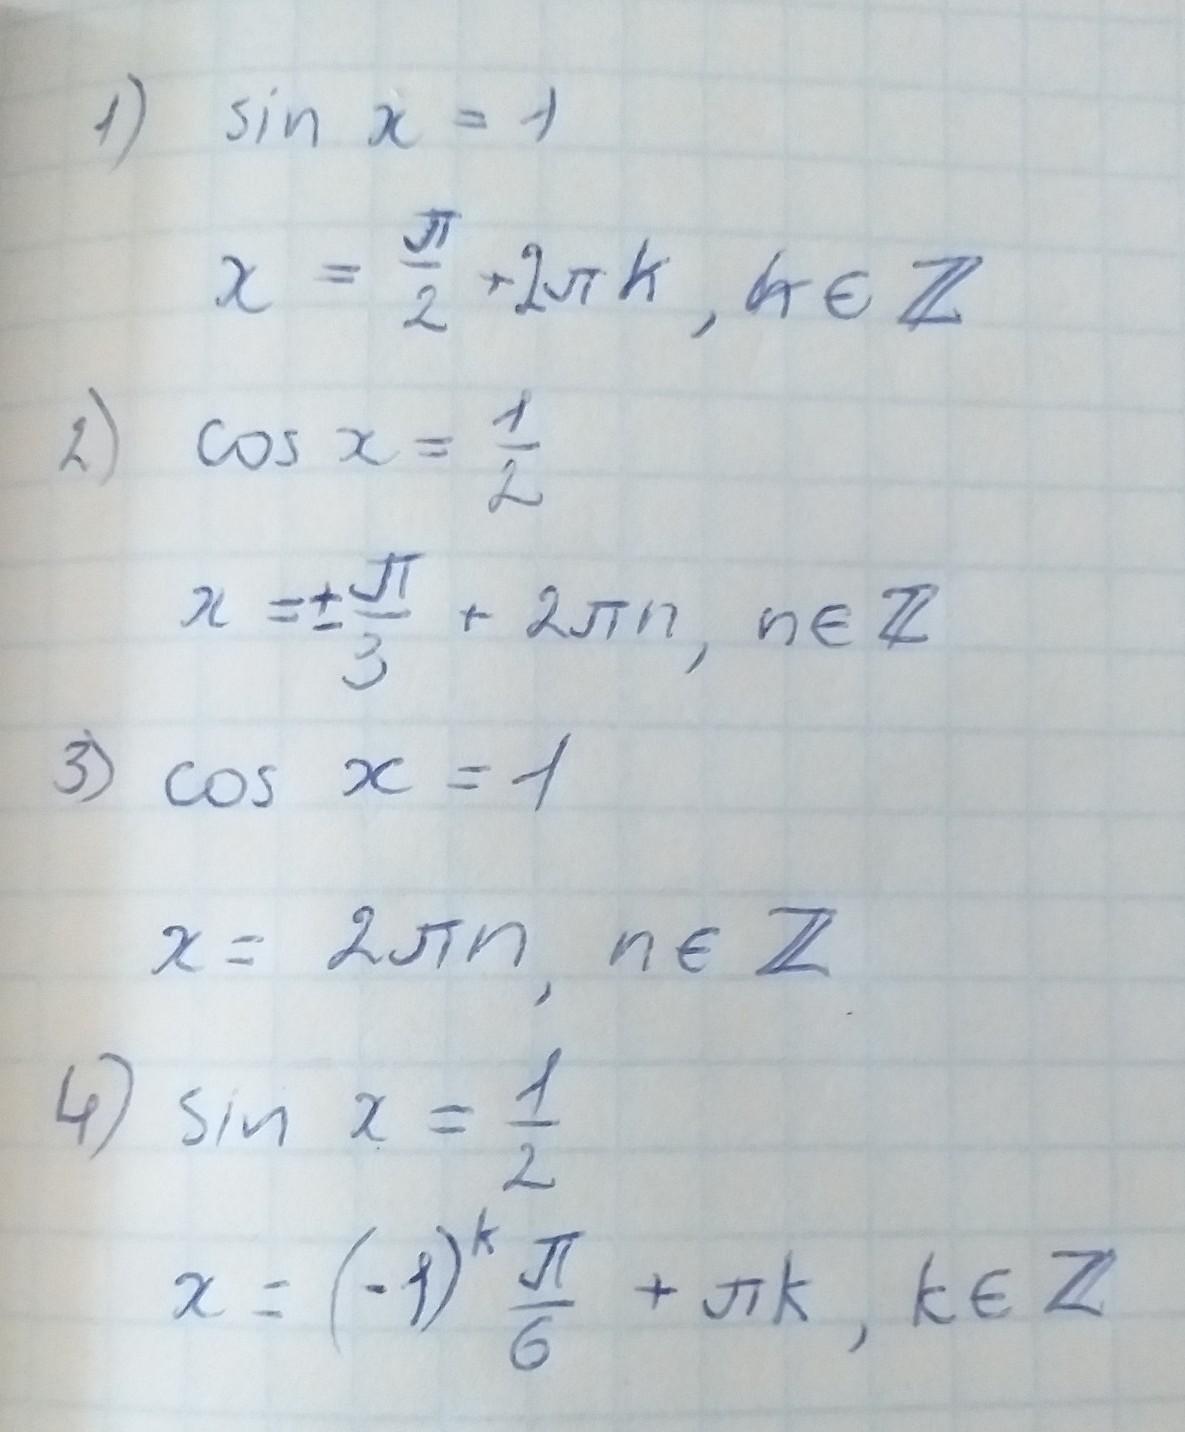 1) sin x = 1
x = π/2 + 2πk, k ∈ ℤ
2) cos x = 1/2
x = ± π/3 + 2πn, n ∈ ℤ
3) cos x = 1
x = 2πn, n ∈ ℤ
4) sin x = 1/2
x = (-1)^k π/6 + πk, k ∈ ℤ